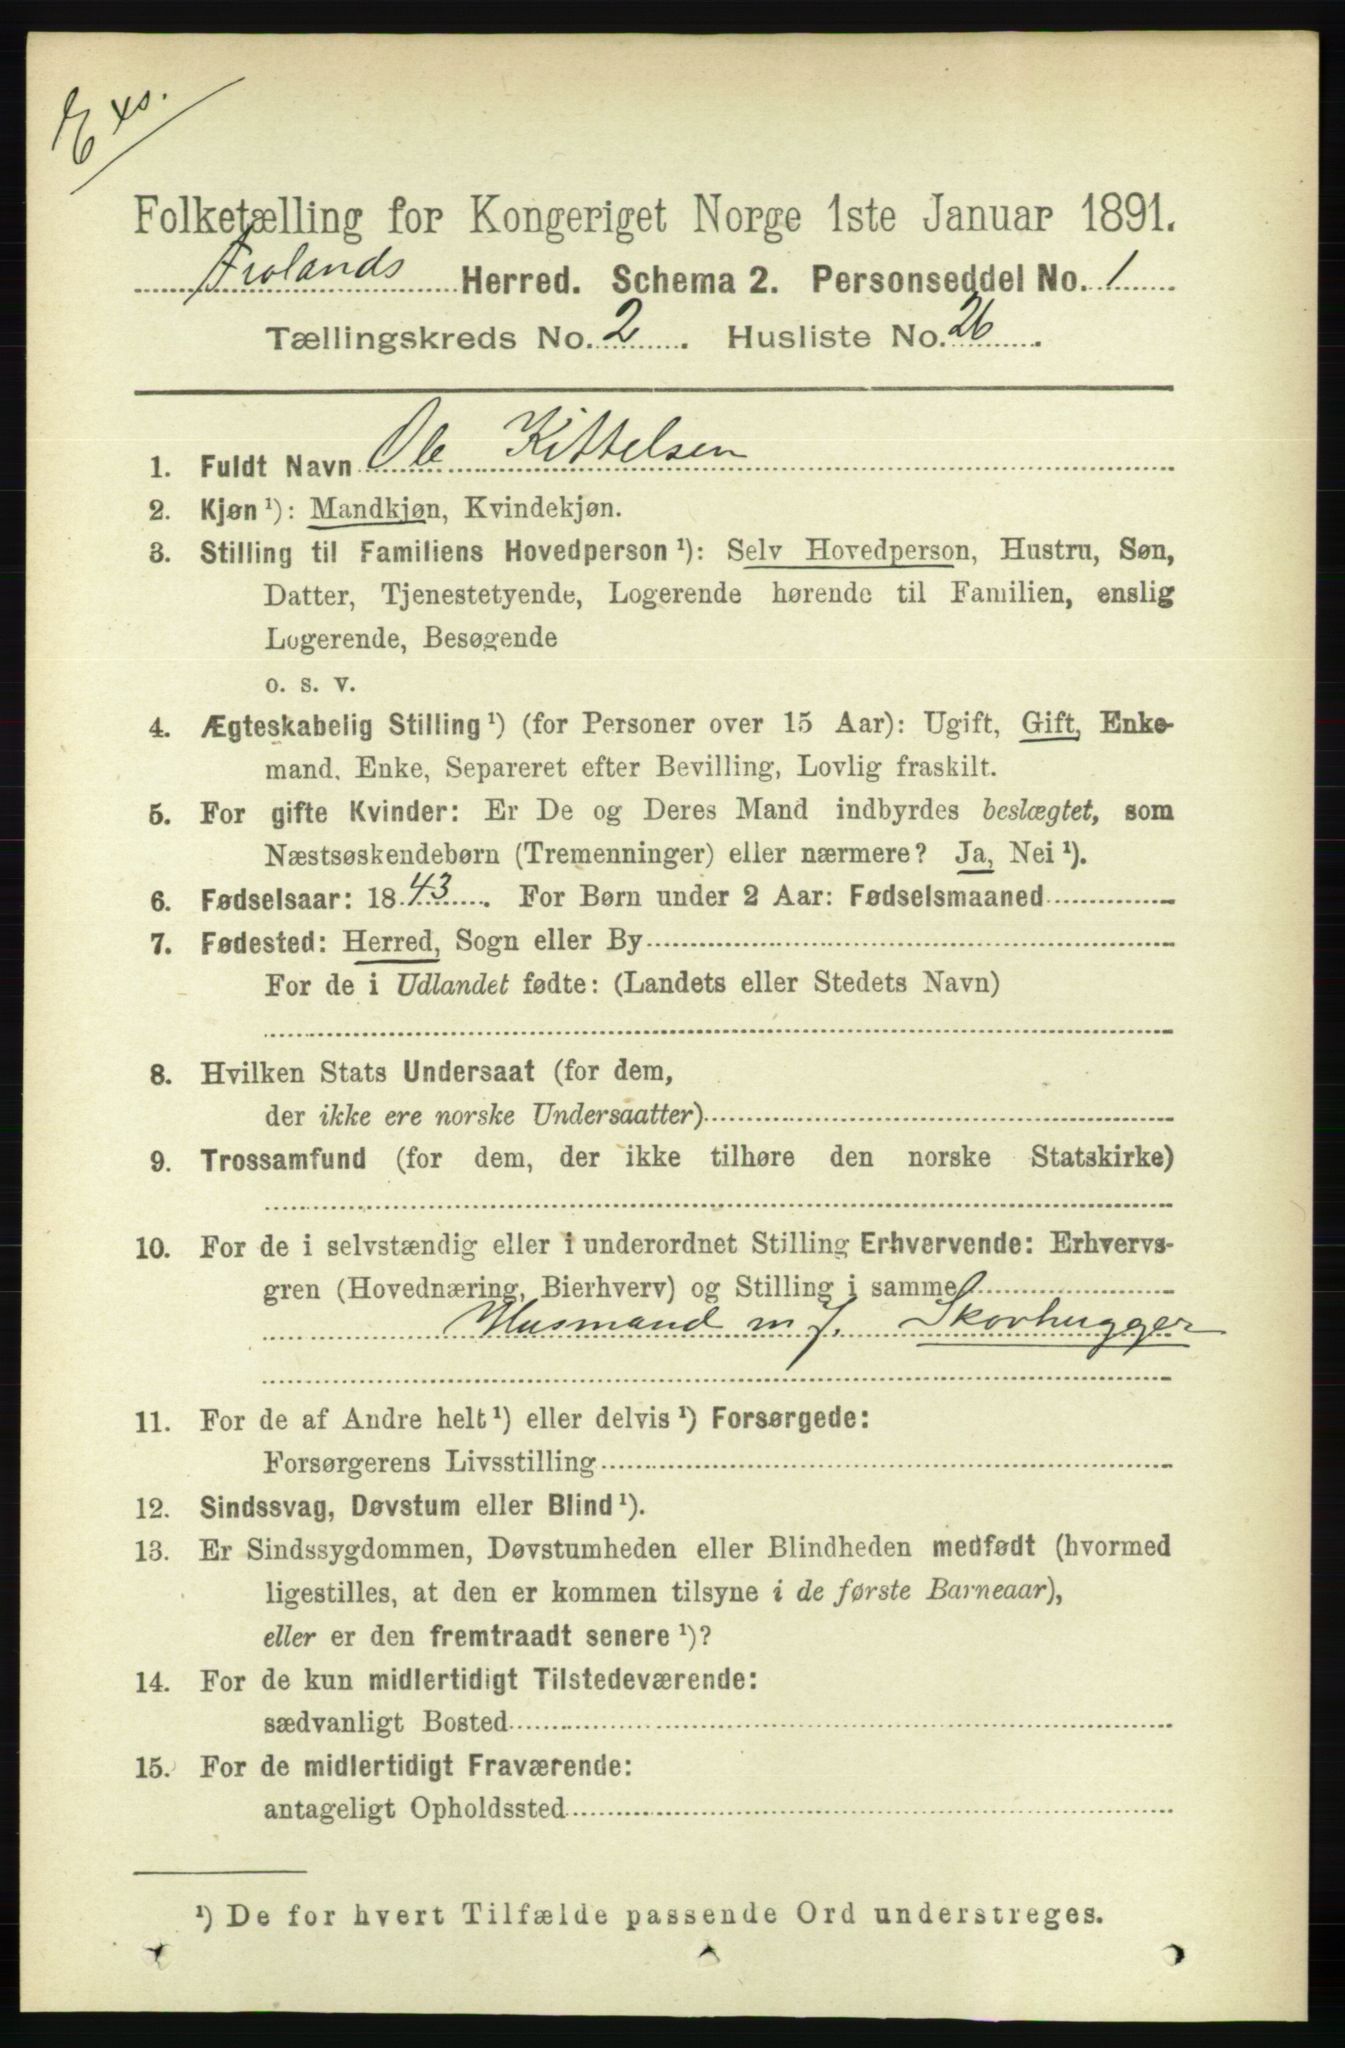 Exs.
Folketælling for Kongeriget Norge 1ste Januar 1891.
Frolands Herred. Schema 2. Personseddel No. 1
Tællingskreds No. 2. Husliste No. 26.
1. Fuldt Navn Ole Kittelsen
2. Kjøn ¹): Mandkjøn, Kvindekjøn.
3. Stilling til Familiens Hovedperson ¹): Selv Hovedperson, Hustru, Søn,
Datter, Tjenestetyende, Logerende hørende til Familien, enslig
Logerende, Besøgende
o. s. v.
4. Ægteskabelig Stilling ¹) (for Personer over 15 Aar): Ugift, Gift, Enke-
mand, Enke, Separeret efter Bevilling, Lovlig fraskilt.
5. For gifte Kvinder: Er De og Deres Mand indbyrdes beslægtet, som
Næstsøskendebørn (Tremenninger) eller nærmere? Ja, Nei ¹).
6. Fødselsaar: 1843. For Børn under 2 Aar: Fødselsmaaned
7. Fødested: Herred, Sogn eller By
For de i Udlandet fødte: (Landets eller Stedets Navn)
8. Hvilken Stats Undersaat (for dem,
der ikke ere norske Undersaatter)
9. Trossamfund (for dem, der ikke tilhøre den norske Statskirke)
10. For de i selvstændig eller i underordnet Stilling Erhvervende: Erhvervs-
gren (Hovednæring, Bierhverv) og Stilling i samme
Husmand m J. Skovhugger
11. For de af Andre helt ¹) eller delvis ¹) Forsørgede:
Forsørgerens Livsstilling
12. Sindssvag, Døvstum eller Blind ¹).
13. Er Sindssygdommen, Døvstumheden eller Blindheden medfødt (hvormed
ligestilles, at den er kommen tilsyne i de første Barneaar),
eller er den fremtraadt senere ¹)?
14. For de kun midlertidigt Tilstedeværende:
sædvanligt Bosted
15. For de midlertidigt Fraværende:
antageligt Opholdssted
¹) De for hvert Tilfælde passende Ord understreges.